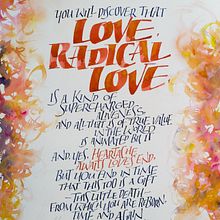 YOU WILL DISCOVER THAT
LOVE,
RADICAL
LOVE,
IS A KIND OF
SUPERCHARGED
ALIVENESS,
AND ALL THAT IS OF TRUE VALUE
IN THE WORLD
IS ANIMATED BY IT.
AND YES, HEARTACHE
AWAITS LOVE'S END,
BUT YOU FIND IN TIME
THAT THIS TOO IS A GIFT
– THIS LITTLE DEATH –
FROM WHICH YOU ARE REBORN
TIME AND AGAIN.